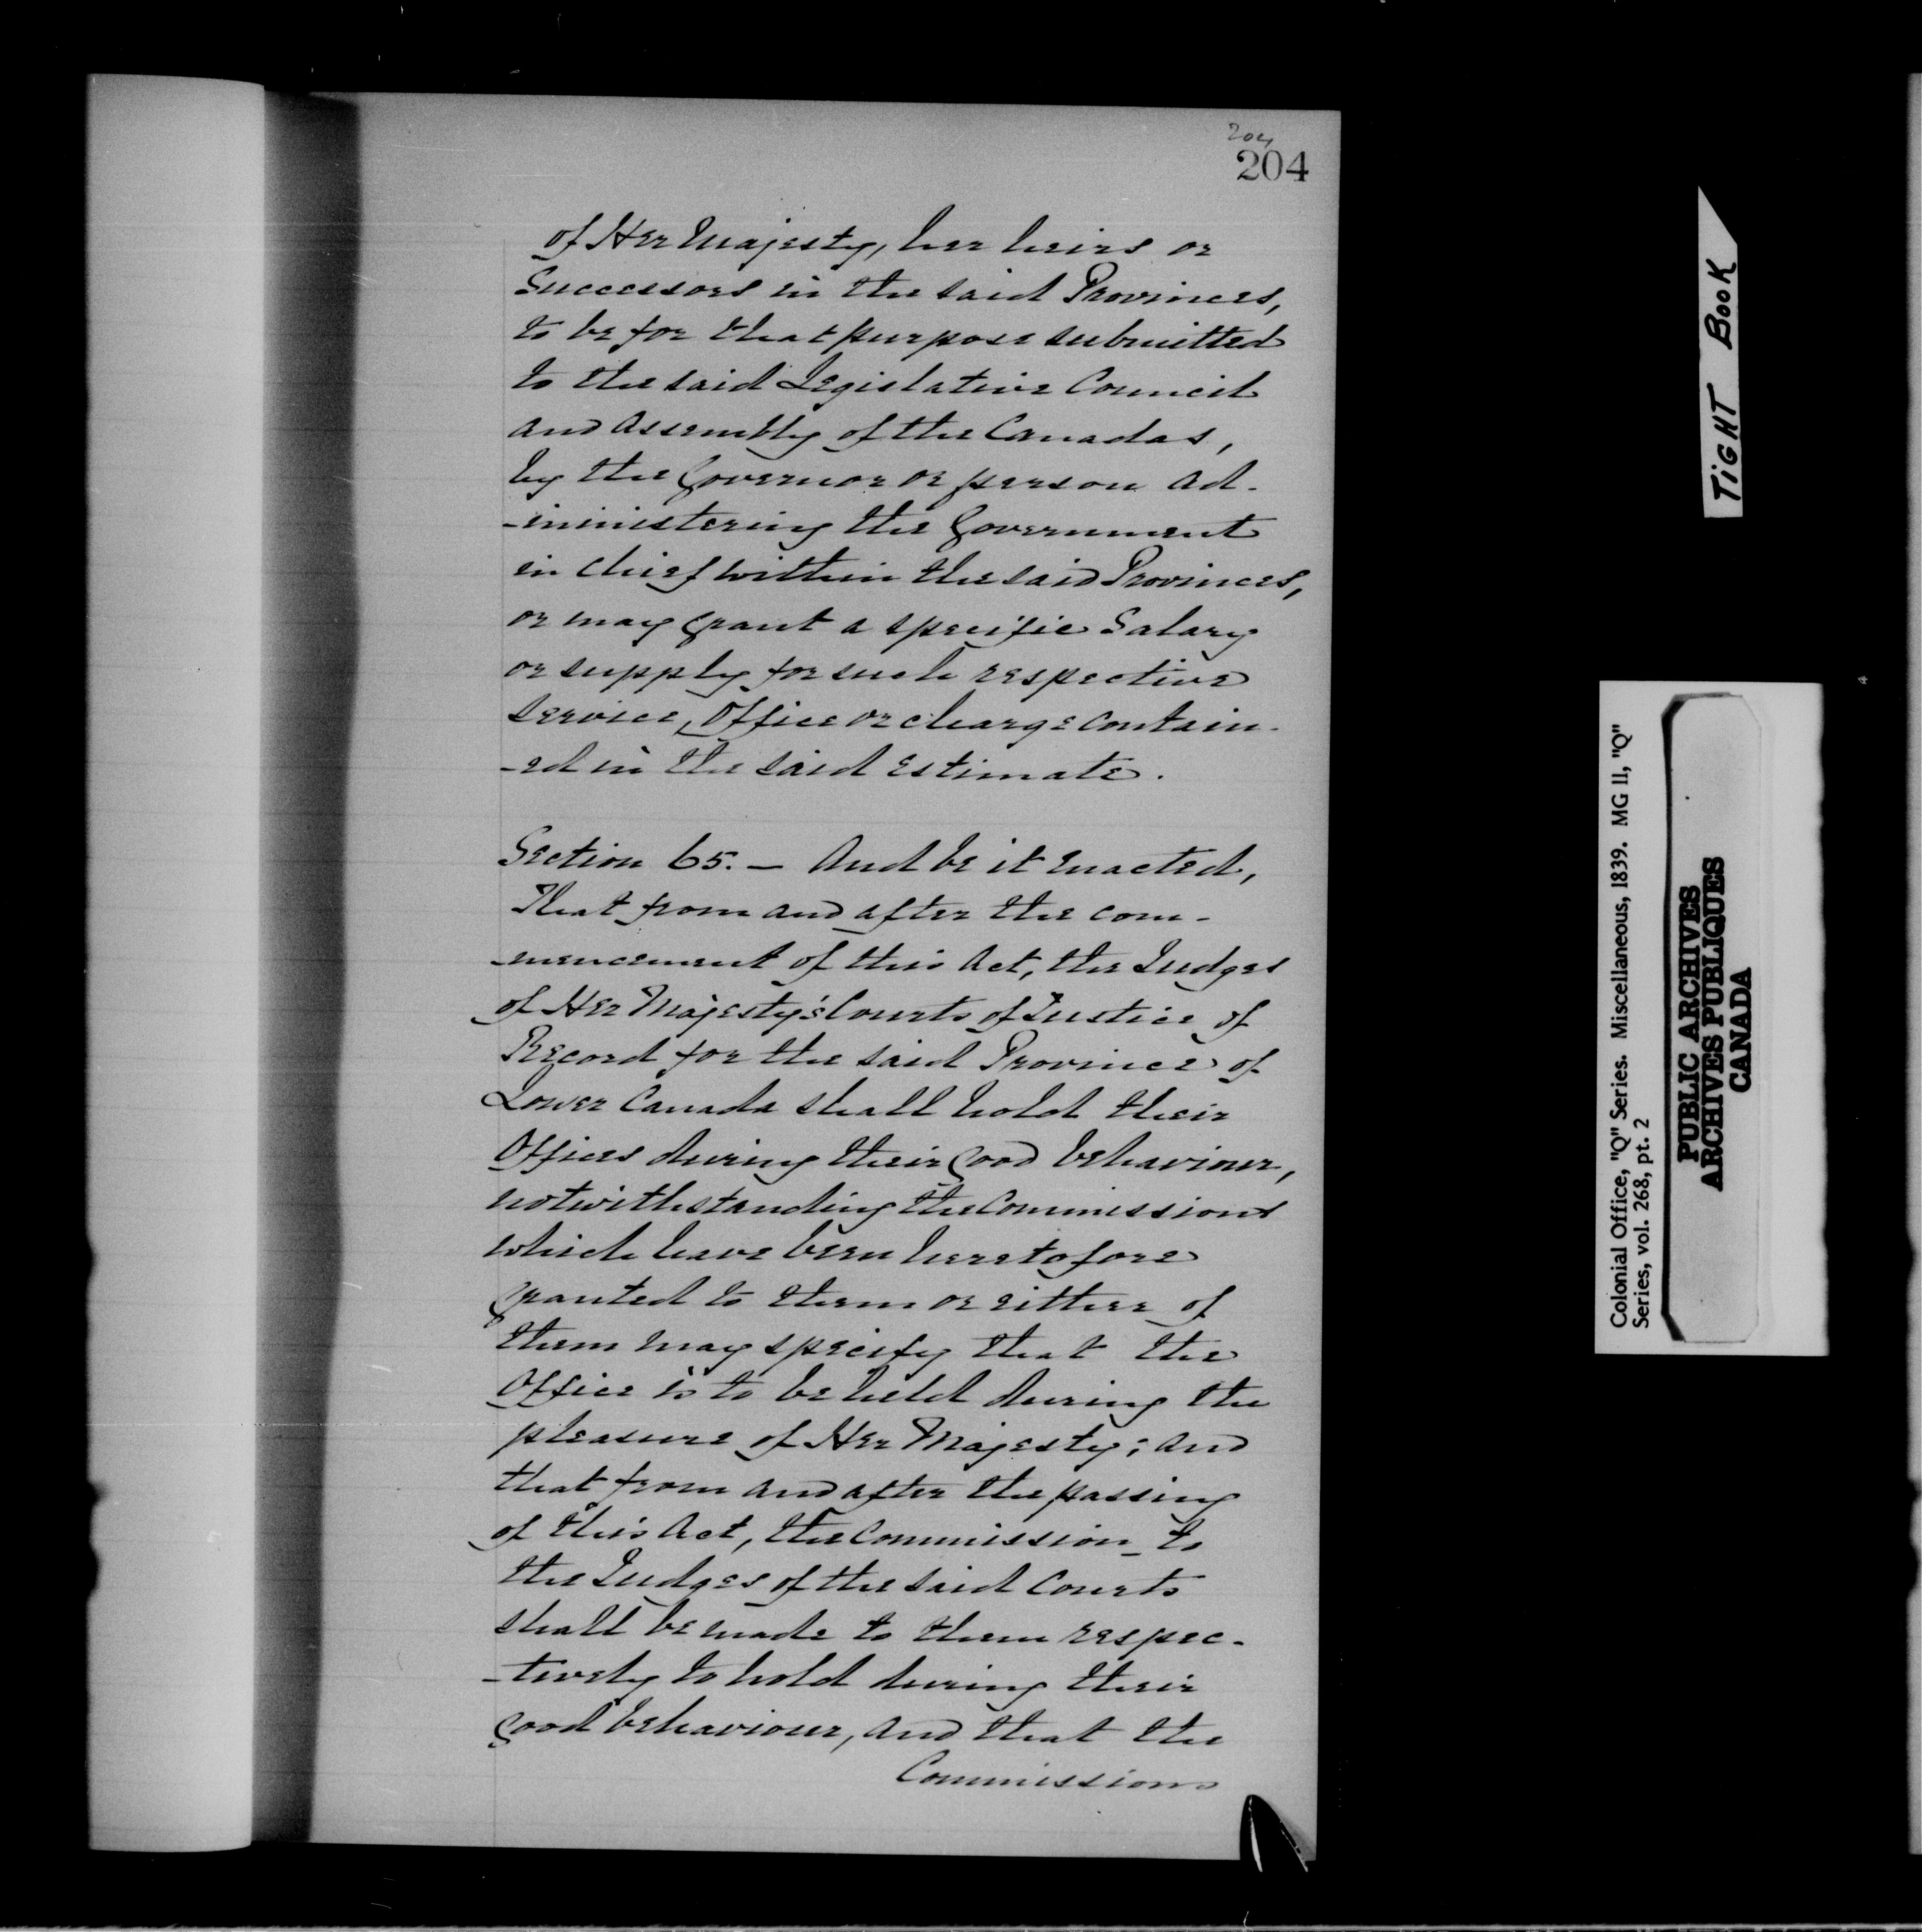 204
204
of Her Majesty, her heirs or
Successors in the said Provinces,
to be for that purpose submitted
to the said Legislative Council
and Assembly of the Canadas,
by the Governor or person ad-
-ministering the Government
in chief within the said Provinces,
or may grant a specific Salary
or supply for such respective
service, Office or charge contain-
-ed in the said estimate.
Section 65. — And be it enacted,
That from and after the com-
-mencement of this Act, the Judges
of Her Majesty's Courts of Justice of
Record for the said Province of
Lower Canada shall hold their
Offices during their good behaviour,
notwithstanding the Commissions
which have been heretofore
granted to them or either of
them may specify that the
Office is to be held during the
pleasure of Her Majesty; and
that from and after the passing
of this Act, the Commission to
the Judges of the said Courts
shall be made to them respec-
-tively to hold during their
good behaviour, and that the
Commissions
TIGHT BOOK
Colonial Office, "Q" Series. Miscellaneous, 1839. MG 11, "Q"
Series, vol. 268, pt. 2
PUBLIC ARCHIVES
ARCHIVES PUBLIQUES
CANADA